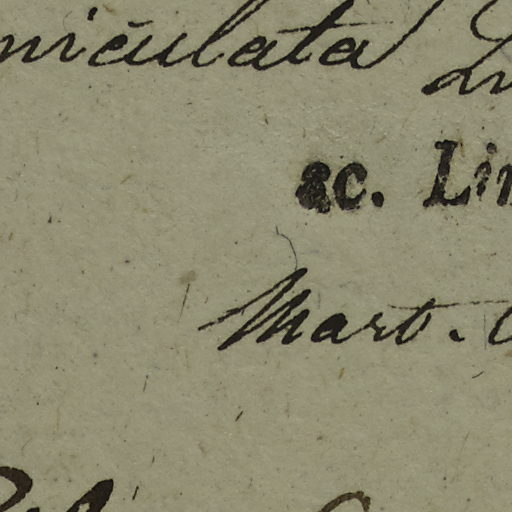 niculata L
ac. Lin
Mart.